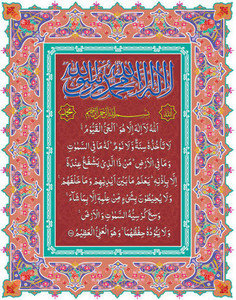 لا اله الا الله محمد رسول الله
الله
بسم الله الرحمن الرحيم
محمد
اَللّٰهُ لَآ اِلٰهَ اِلَّا هُوَ ۚ اَلْحَيُّ الْقَيُّوْمُ
لَا تَأْخُذُهٗ سِنَةٌ وَّلَا نَوْمٌ ؕ لَهٗ مَا فِي السَّمٰوٰتِ
وَمَا فِي الْاَرْضِ ؕ مَنْ ذَا الَّذِيْ يَشْفَعُ عِنْدَهٗٓ
اِلَّا بِاِذْنِهٖ ؕ يَعْلَمُ مَا بَيْنَ اَيْدِيْهِمْ وَمَا خَلْفَهُمْ ۚ
وَلَا يُحِيْطُوْنَ بِشَيْءٍ مِّنْ عِلْمِهٖٓ اِلَّا بِمَا شَآءَ ۚ
وَسِعَ كُرْسِيُّهُ السَّمٰوٰتِ وَالْاَرْضَ ۚ
وَلَا يَـُٔوْدُهٗ حِفْظُهُمَا ۚ وَهُوَ الْعَلِيُّ الْعَظِيْمُ